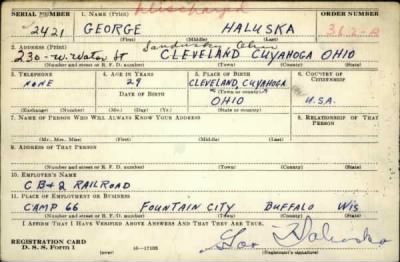 discharged
SERIAL NUMBER 1. NAME (Print)
2421 GEORGE HALUSKA
(First) (Middle) (Last)
2. ADDRESS (Print) Sandusky Ohio
230 - W. Water St CLEVELAND CUYAHOGA OHIO
(Number and street or R. F. D. number) (Town) (County) (State)
3. TELEPHONE 4. AGE IN YEARS 5. PLACE OF BIRTH 6. COUNTRY OF CITIZENSHIP
NONE 29 CLEVELAND, CUYAHOGA
DATE OF BIRTH (Town) (County)
OHIO U.S.A.
(Exchange) (Number) (Mo.) (Day) (Yr.) (State or country)
7. NAME OF PERSON WHO WILL ALWAYS KNOW YOUR ADDRESS 8. RELATIONSHIP OF THAT PERSON
(Mr., Mrs., Miss) (First) (Middle) (Last)
9. ADDRESS OF THAT PERSON
(Number and street or R. F. D. number) (Town) (County) (State)
10. EMPLOYER'S NAME
CB&Q RAILROAD
11. PLACE OF EMPLOYMENT OR BUSINESS
CAMP 66 FOUNTAIN CITY BUFFALO WIS
(Number and street or R. F. D. number) (Town) (County) (State)
I AFFIRM THAT I HAVE VERIFIED ABOVE ANSWERS AND THAT THEY ARE TRUE.
REGISTRATION CARD
D. S. S. Form 1 (over) Geo Haluska
(Registrant's signature)